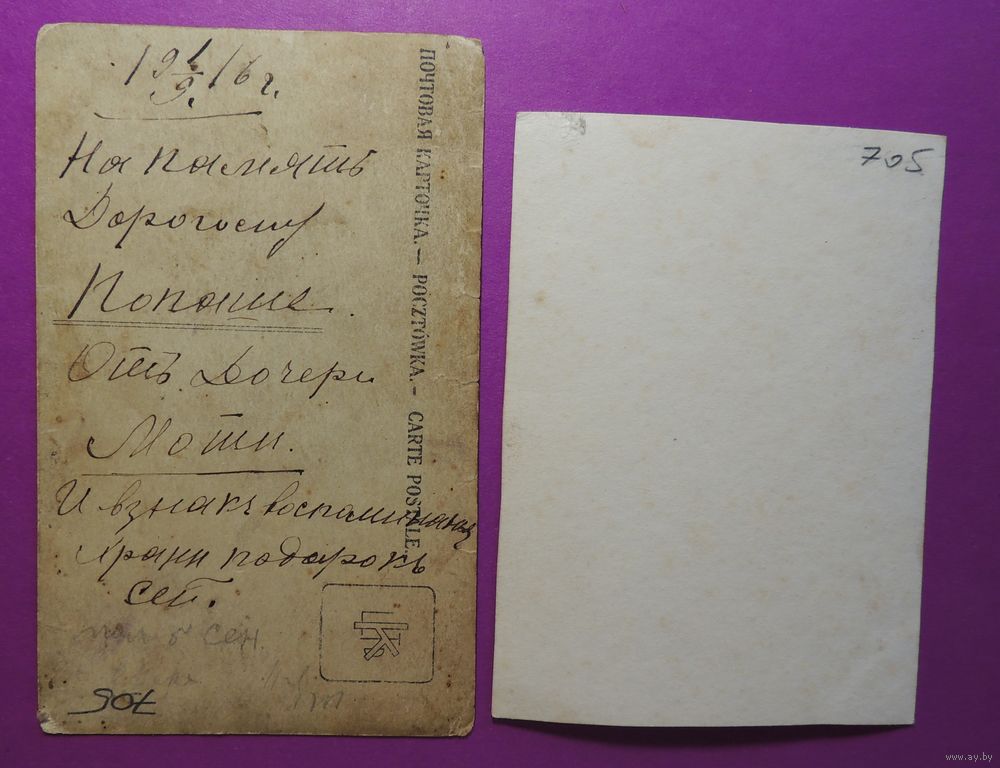 19 1/9 16 г.
На память
Дорогому
Папаше.
Отъ Дочери
Моти.
И в знакъ воспоминания
Храни подарокъ
сей.
сен.
705
ПОЧТОВАЯ КАРТОЧКА. — POCZTÓWKA. - CARTE POSTALE.
705
www.ay.by